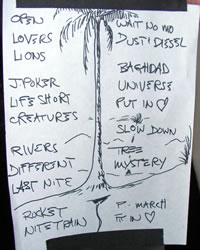 OPEN
LOVERS
LIONS
J. POKER
LIFE SHORT
CREATURES
RIVERS
DIFFERENT
LAST NITE
ROCKET
NITETRAIN
WAIT NO MO
DUST & DIESEL
BAGHDAD
UNIVERSE
PUT IN ♡
SLOW DOWN
TREE
MYSTERY
F-MARCH
IN ♡